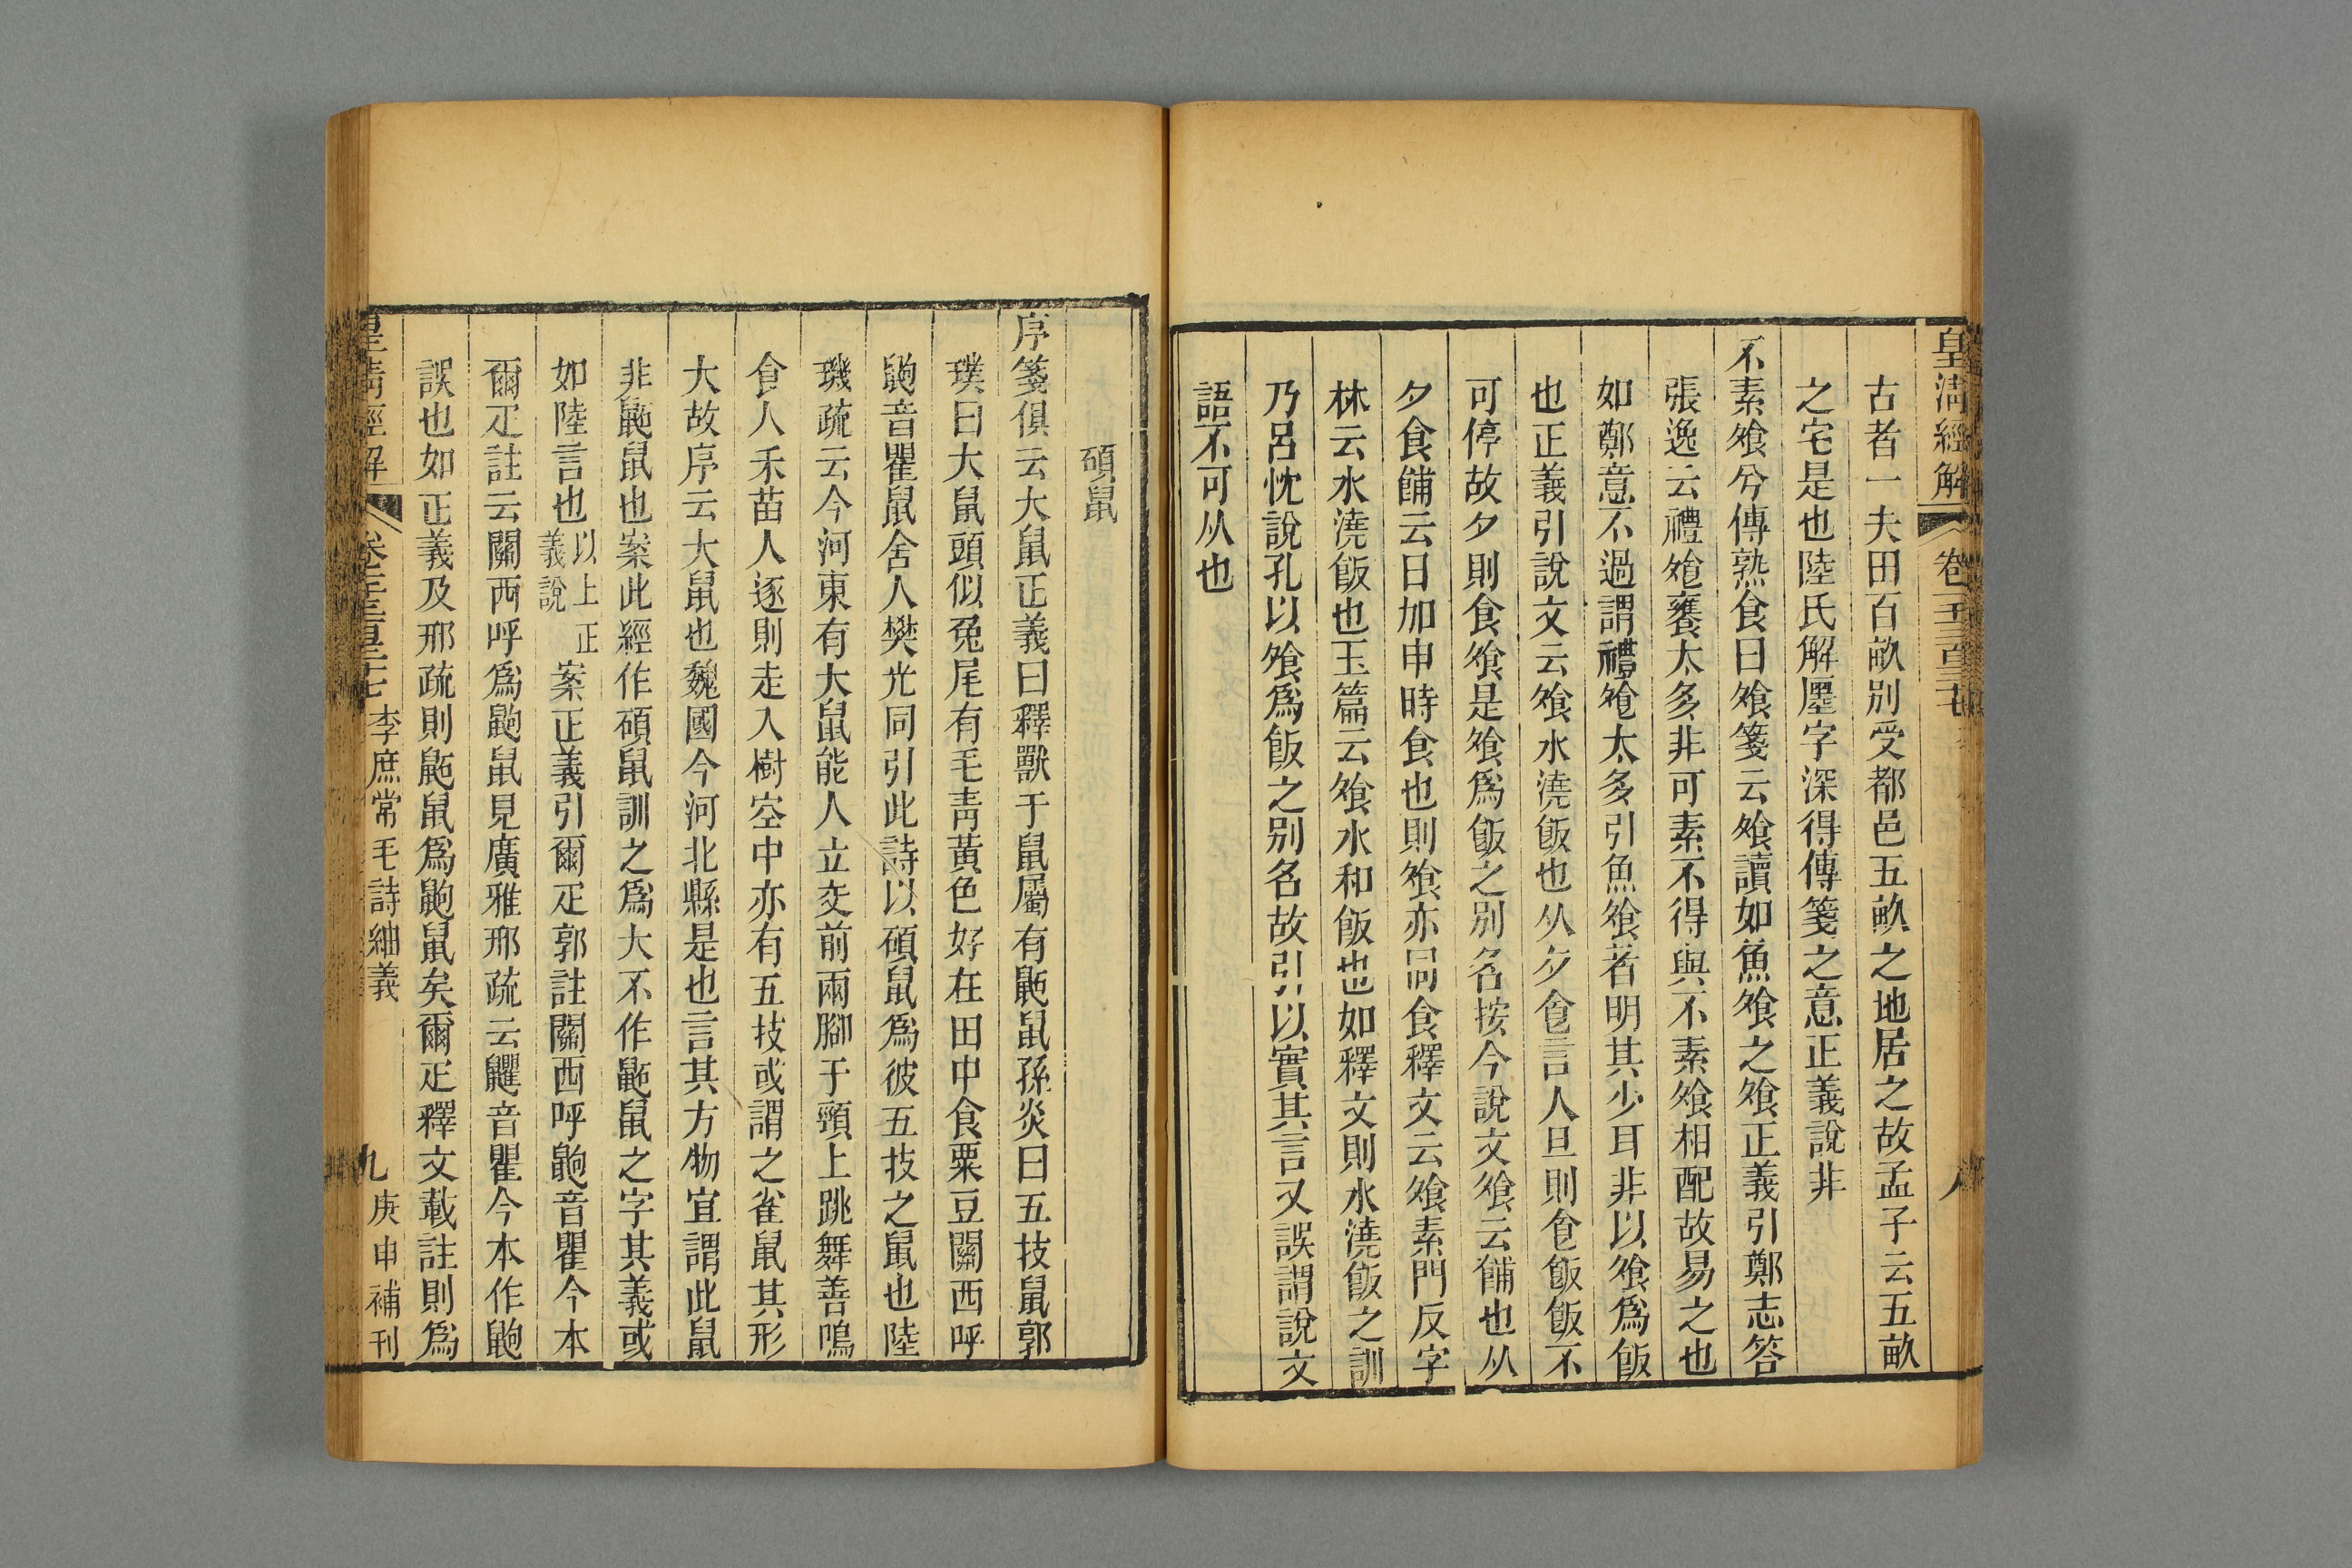 皇清經解 卷一千三百三十七 八
古者一夫田百畝別受都邑五畝之地居之故孟子云五畝
之宅是也陸氏解廛字深得傳箋之意正義說非
不素飧兮傳熟食曰飧箋云飧讀如魚飧之飧正義引鄭志答
張逸云禮飧饔太多非可素不得與不素飧相配故易之也
如鄭意不過謂禮飧太多引魚飧者明其少耳非以飧爲飯
也正義引說文云飧水澆飯也从夕食言人旦則食飯飯不
可停故夕則食飧是飧爲飯之別名按今說文飧云餔也从
夕食餔云日加申時食也則飧亦同食釋文云飧素門反字
林云水澆飯也玉篇云飧水和飯也如釋文則水澆飯之訓
乃呂忱說孔以飧爲飯之別名故引以實其言又誤謂說文
語不可从也
碩鼠
序箋俱云大鼠正義曰釋獸于鼠屬有鼫鼠孫炎曰五技鼠郭
璞曰大鼠頭似兔尾有毛青黃色好在田中食粟豆關西呼
鼩音瞿鼠舍人樊光同引此詩以碩鼠爲彼五技之鼠也陸
璣疏云今河東有大鼠能人立交前兩腳于頸上跳舞善鳴
食人禾苗人逐則走入樹空中亦有五技或謂之雀鼠其形
大故序云大鼠也魏國今河北縣是也言其方物宜謂此鼠
非鼫鼠也案此經作碩鼠訓之爲大不作鼫鼠之字其義或
如陸言也以上正義說案正義引爾疋郭註關西呼鼩音瞿今本
爾疋註云關西呼爲鼩鼠見廣雅邢疏云鼩音瞿今本作鼩
誤也如正義及邢疏則鼫鼠爲鼩鼠矣爾疋釋文載註則爲
皇清經解 卷一千三百三十七 李庶常毛詩紬義 九 庚申補刊